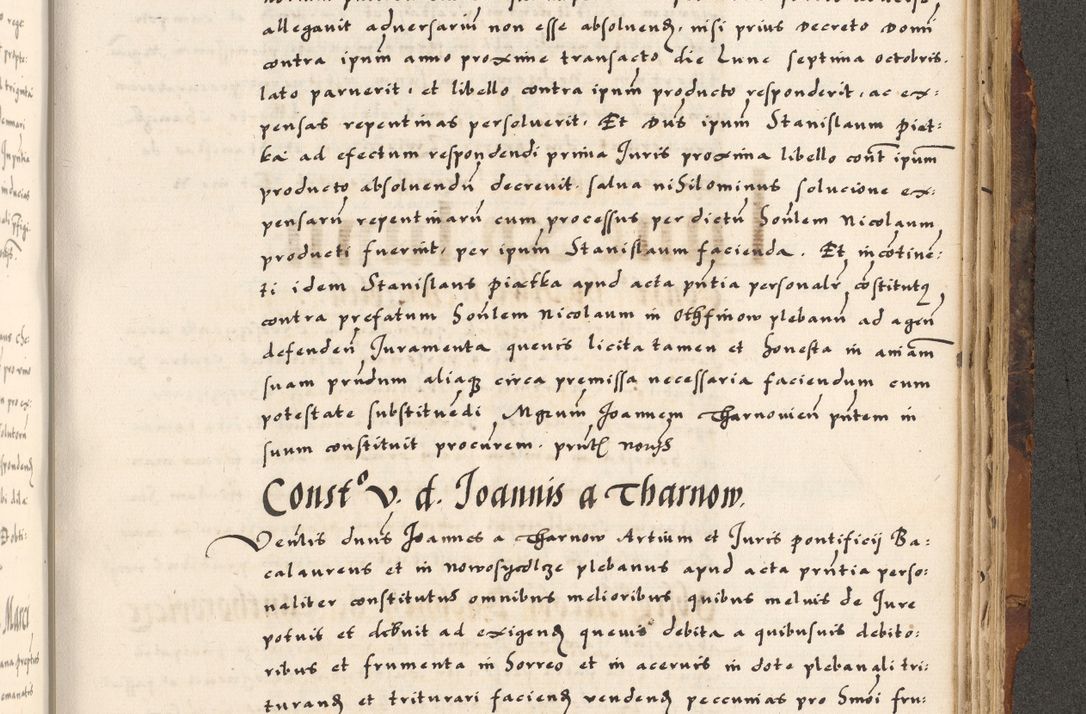 allegavit adversarium non esse absolvend, nisi prius Decreto Domi
contra ipum anno proxime transacto die Lune septima octobris.
lato paruerit, et libello contra ipum producto responderit, ac ex-
pensas repentinas persoluerit. Et Dns ipum Stanislaum Piat-
ka ad efectum respondendi prima Juris proxima libello cont ipum
producto absolvendu decrevit. salva nihilominus solucione ex-
pensaru repentinaru cum processus per dictu honlem Nicolaum
producti fuerint, per ipum Stanislaum facienda. Et incotine-
ti idem Stanislaus Piatka apud acta pntia personalr costitutq
contra prefatum honlem Nicolaum in Othfinow plebanu ad agen
defenden, Juramenta quevis licita tamen et honesta in aniam
suam prndum aliaq circa premissa necessaria faciendum cum
potestate substituedi, Mgrum Joannem Tharnovien pntem in
suum constituit procurem. prntl
Constº v. d. Joannis a Tharnow.
Venlis dnus Joannes a Tharnow Artium et Juris pontificij Ba-
calaureus et in plebanus apud acta prntia perso-
naliter constitutus omnibus melioribus quibus melius de Jure
potuis et debuit ad exigend quevis debita a quibusvis debito-
ribus et frumenta in horreo et in acervis in dote plebanali tri-
turand et triturari faciend vendend peccunias pro hmoi fru-